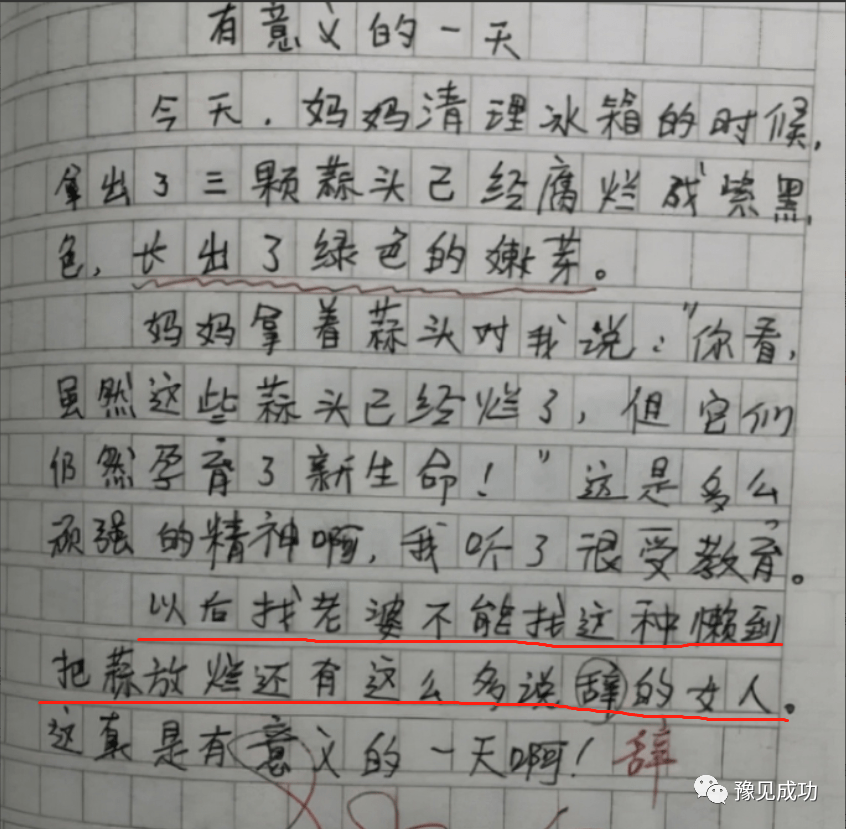 有意义的一天
今天，妈妈清理冰箱的时候，
拿出了三颗蒜头已经腐烂成紫黑
色，长出了绿色的嫩芽。
妈妈拿着蒜头对我说："你看，
虽然这些蒜头已经烂了，但它们
仍然孕育了新生命！"这是多么
顽强的精神啊，我听了很受教育。
以后找老婆不能找这种懒到
把蒜放烂还有这么多说辞的女人。
这真是有意义的一天啊！辞
豫见成功